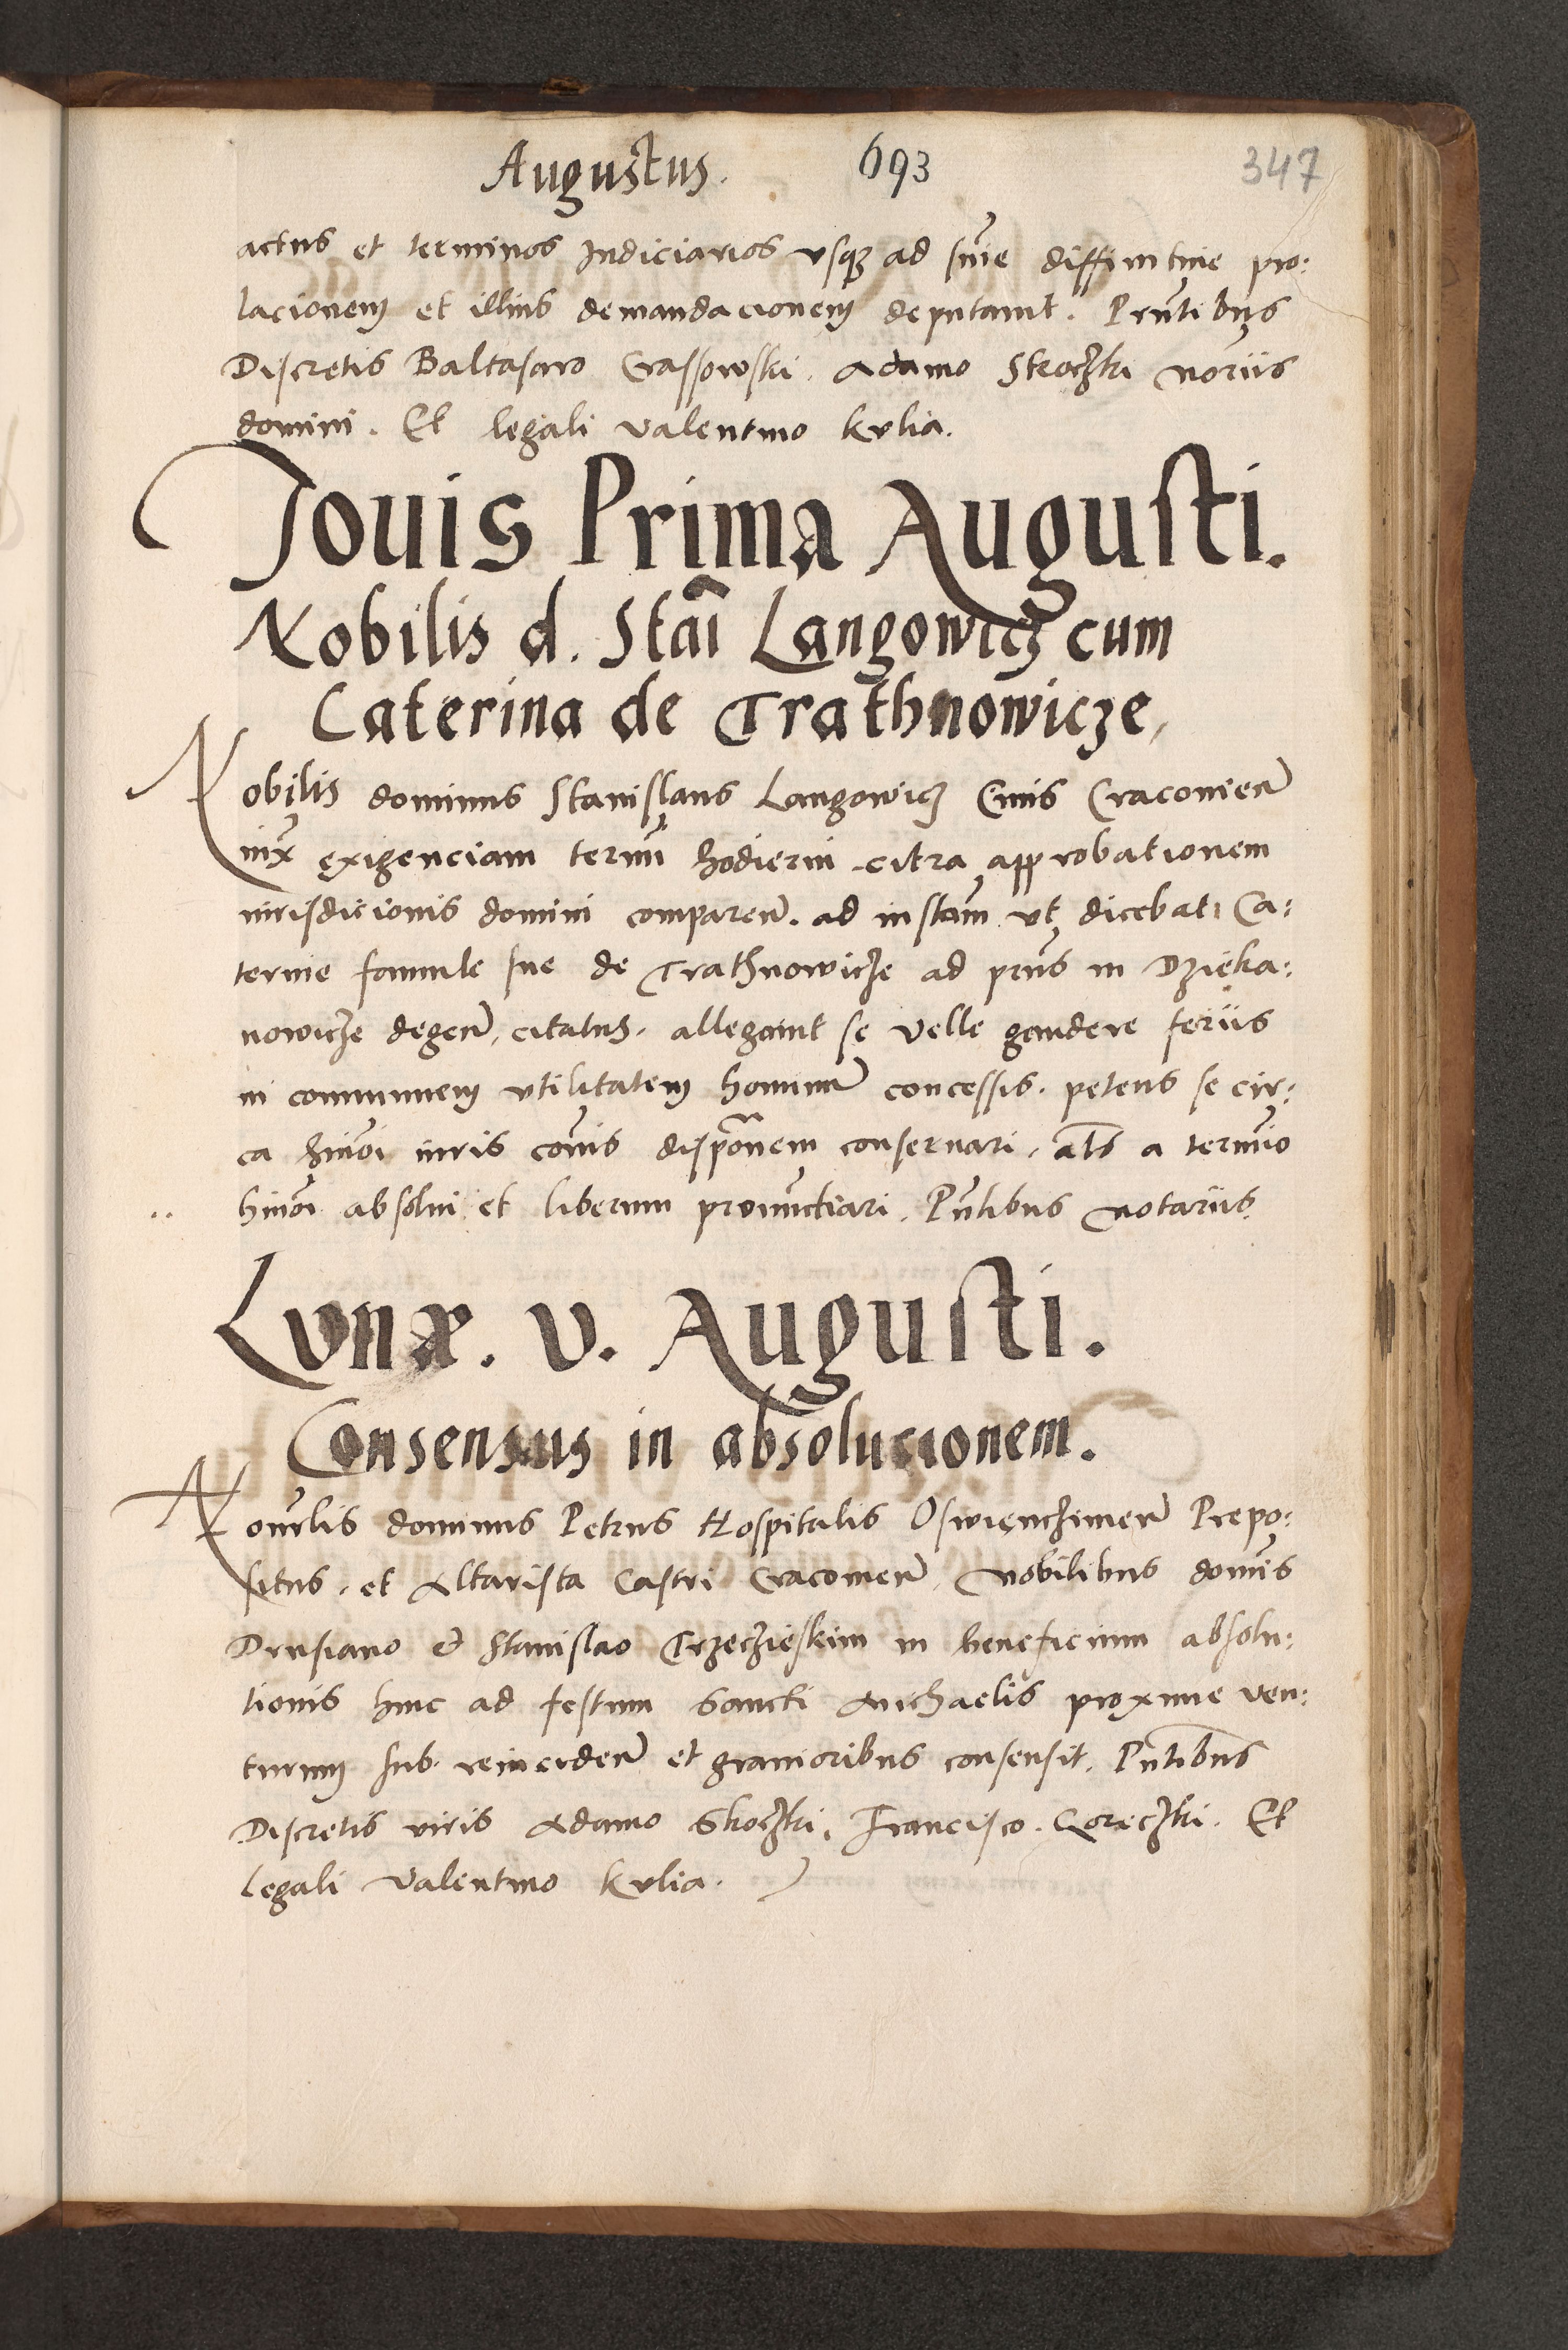 Augustus. 693 347
actus et terminos Iudiciarios vsq3 ad sn̄ie diffinitiue pro:
lacionem et illius demandacionem deputauit. Prn̄tibus
Discretis Baltasaro Gassowski. Adamo Skoczki Nor̄iis
domini. Et legali Valentino kulia.
Iouis Prima Augusti.
Nobilis d. Stāi Langowicz cum
Caterina de Trathnowicze,
Nobilis dominus Stanislaus Langowicz Ciuis Cracouien̄
iux̄ exigenciam termī hodierni citra approbationem
iurisdicionis domini comparen̄. ad instam̄ vt dicebat Ca:
terine famule sue de Trathnowicze ad prn̄s in Dzieka:
nowicze degen̄, citatus. allegauit se velle gaudere feriis
in communem vtilitatem hominum̄ concessis. petens se cir:
ca hmōi iuris cōmis disponem̄ conseruari. al̄s a termīo
hmōi absolui et liberum pronunc̄tiari. Pn̄tibus Notariis
Lunæ. v. Augusti.
Consensus in absolucionem.
Nou̅rlis dominus Petrus Hospitalis Oswienczimen̄ Prepo:
situs. et Altarista Castri Cracouien̄. Nobilibus domīs
Drusiano & Stanislao Trzeczieskim in beneficium absolu:
tionis hinc ad festum Sancti Michaelis proxime ven:
turum sub reinciden̄ et grauioribus consensit. Pn̄tibus
Discretis viris Adamo Skoczki, Francisco. Goreczki. Et
legali Valentino kulia.